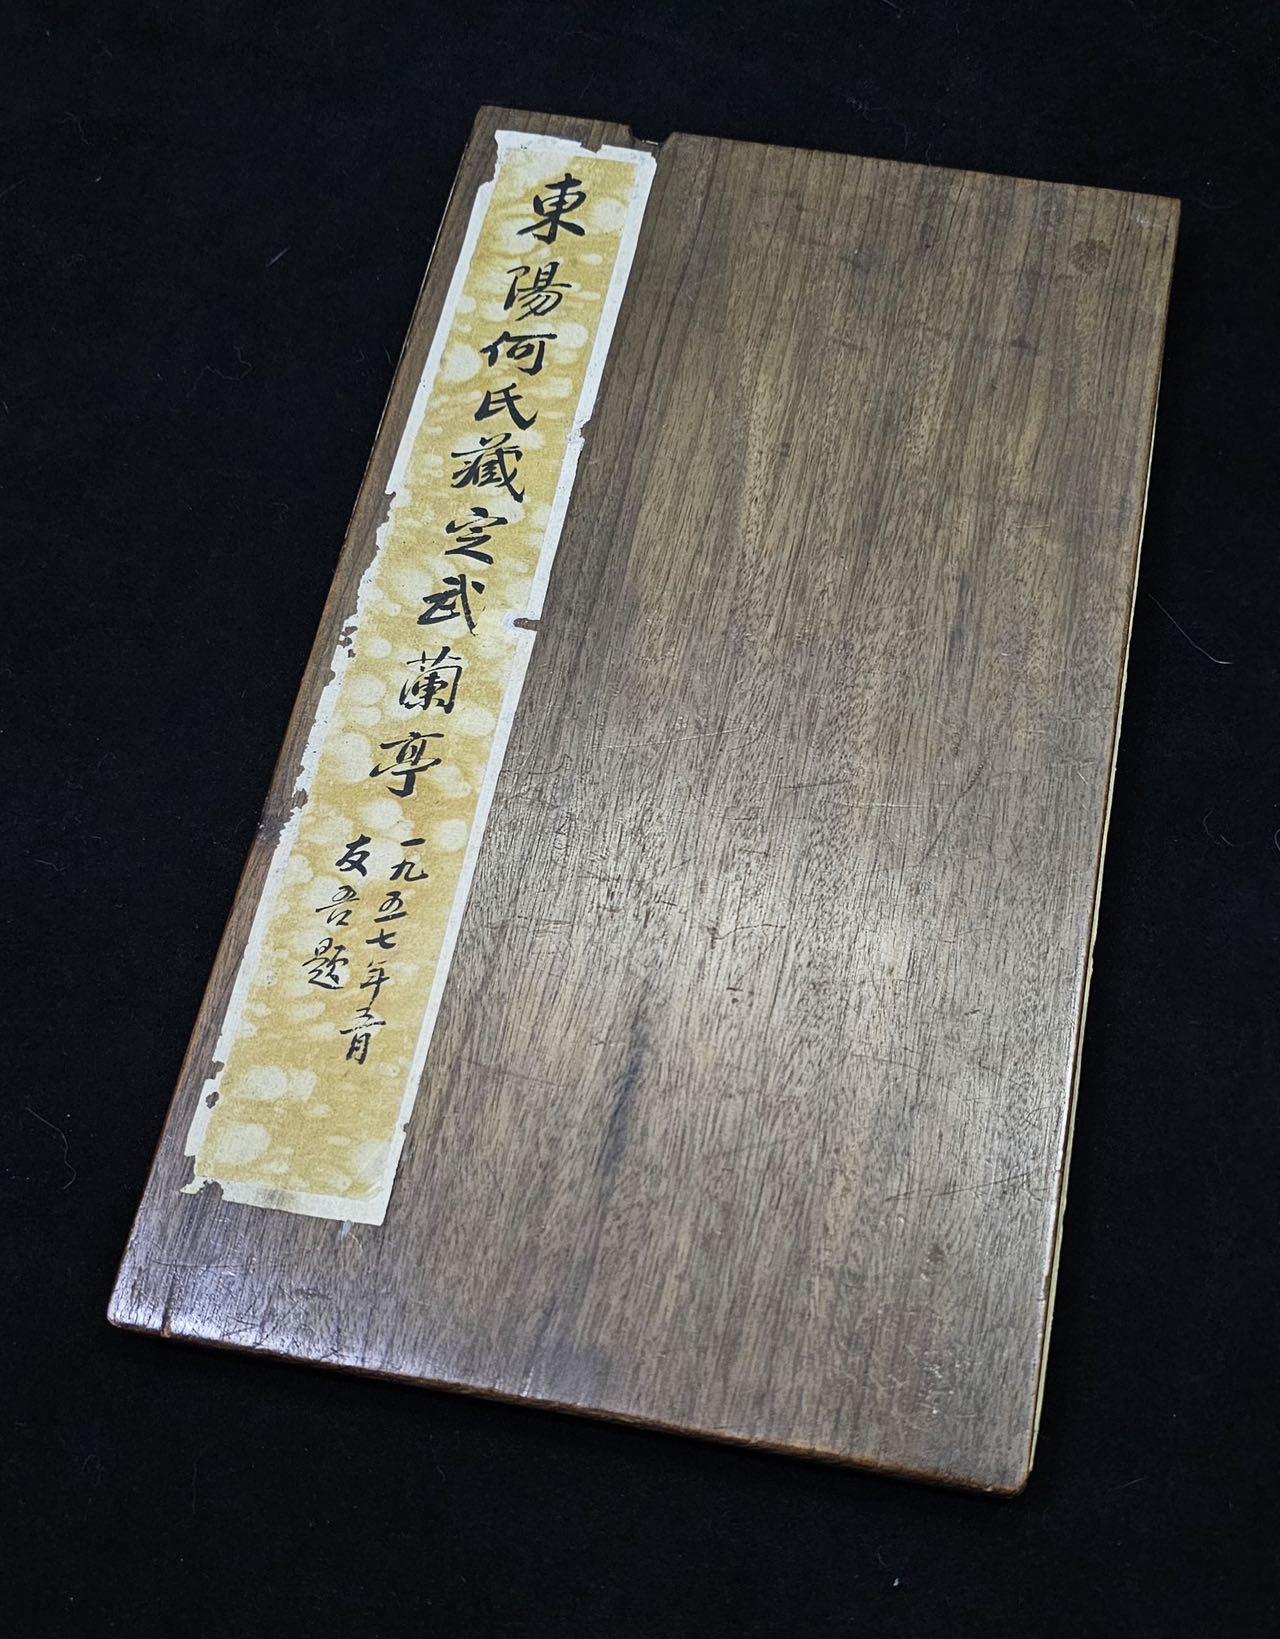 東陽何氏藏定武蘭亭
一九五七年五月
友吾題